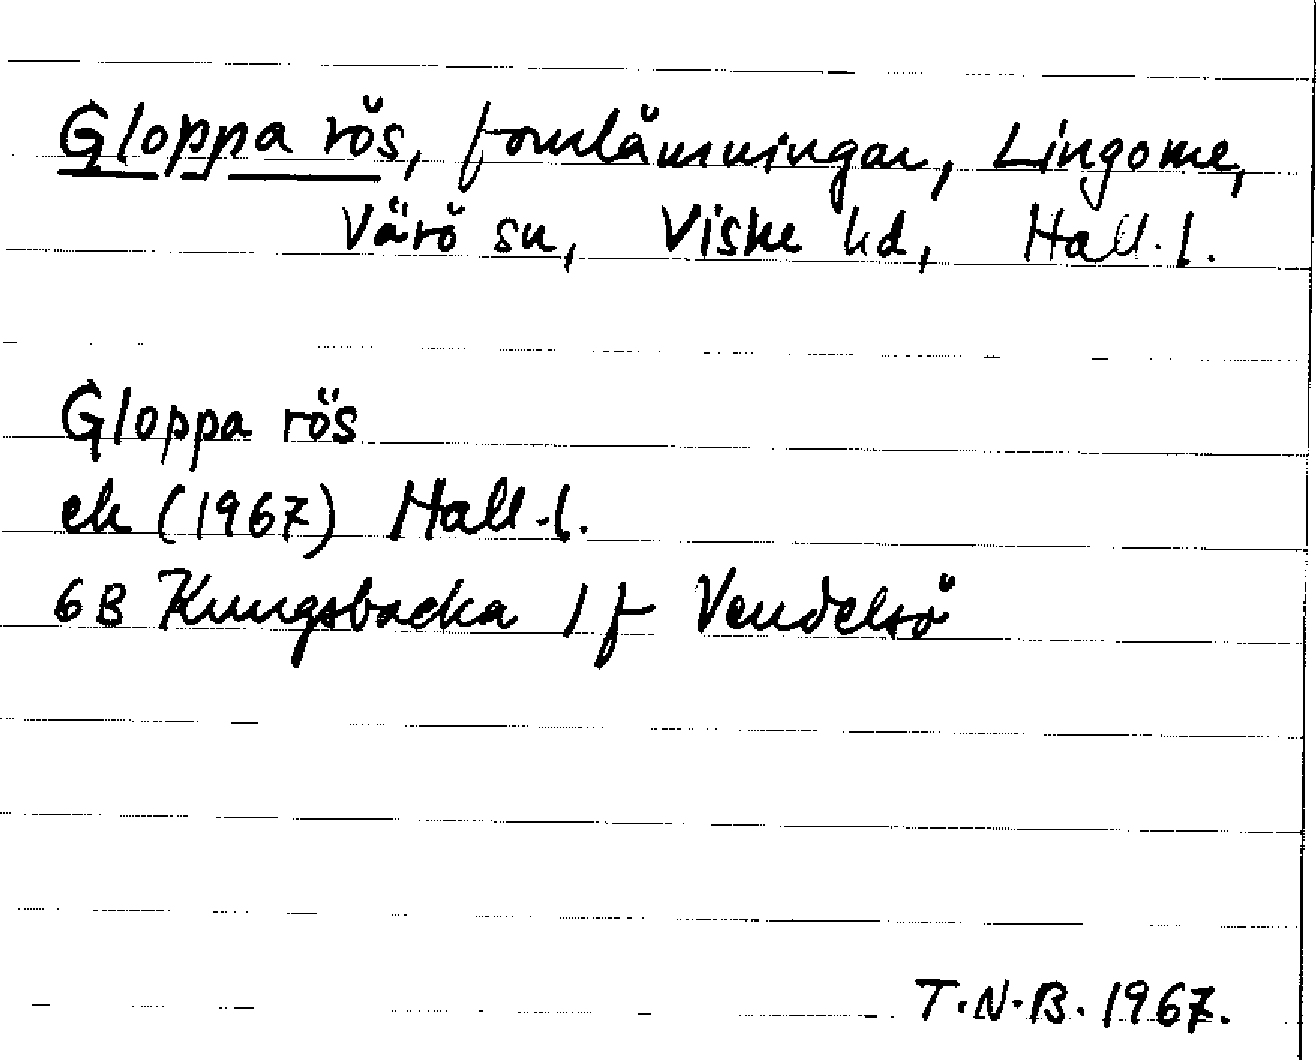 Gloppa rös, fornlämningar, Lingome,
Värö sn, Viske hd, Hall. l.
Gloppa rös
ek (1967) Hall. l.
6B Kungsbacka 1 f Vendelsö
T.N.B. 1967.